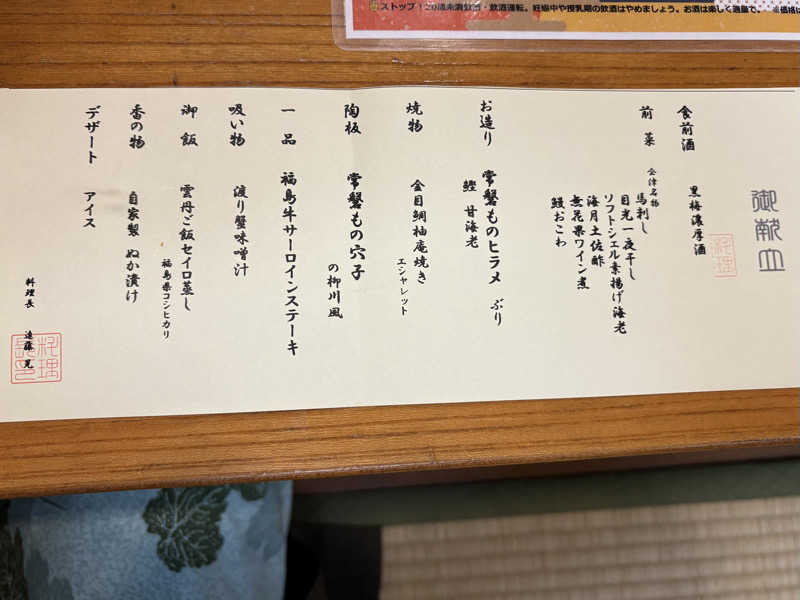 ストップ!20歳未満飲酒・飲酒運転。妊娠中や授乳期の飲酒はやめましょう。お酒は楽しく適量で。
御献立
料理
食前酒 黒梅濃厚酒
前菜 会津名物 馬刺し
目光一夜干し
ソフトシェル素揚げ海老
海月土佐酢
無花果ワイン煮
鰻おこわ
お造り 常磐ものヒラメ ぶり
鰹 甘海老
焼物 金目鯛柚庵焼き
エシャレット
陶板 常磐もの穴子
の柳川風
一品 福島牛サーロインステーキ
吸い物 渡り蟹味噌汁
御飯 雲丹ご飯セイロ蒸し
福島県コシヒカリ
香の物 自家製 ぬか漬け
デザート アイス
料理長 遠藤
料理